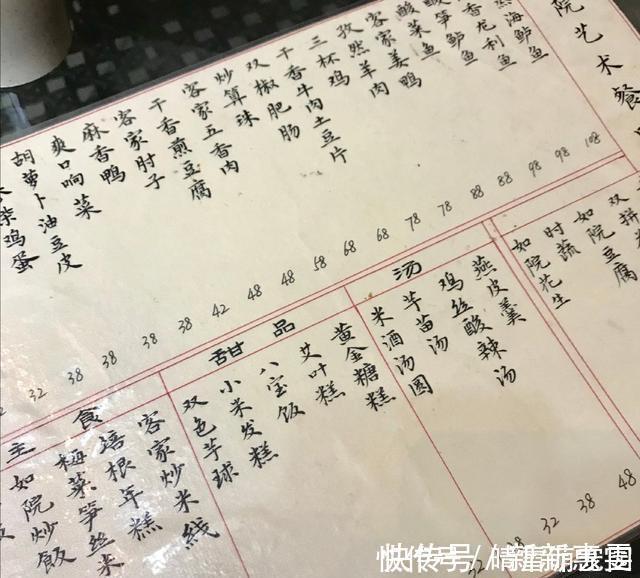 院艺术餐
海鲈鱼
香龙利鱼
酸笋鲈鱼
酸菜鱼
客家姜鸭
孜然羊肉
三杯鸡
干香牛肉土豆片
双椒肥肠
炒算珠
客家五香肉
干香煎豆腐
客家肘子
麻香鸭
爽口响菜
胡萝卜油豆皮
柴鸡蛋
108
98
98
88
88
78
78
68
68
58
48
48
42
38
38
38
38
32
双拼
如院豆腐
时蔬
如院花生
48
38
38
32
32
汤
燕皮羹
鸡丝酸辣汤
芋苗汤
米酒汤圆
甜品
黄金糖糕
艾叶糕
八宝饭
小米发糕
双色芋球
主食
客家炒米线
培根年糕
梅菜笋丝米
如院炒飯
快传号/